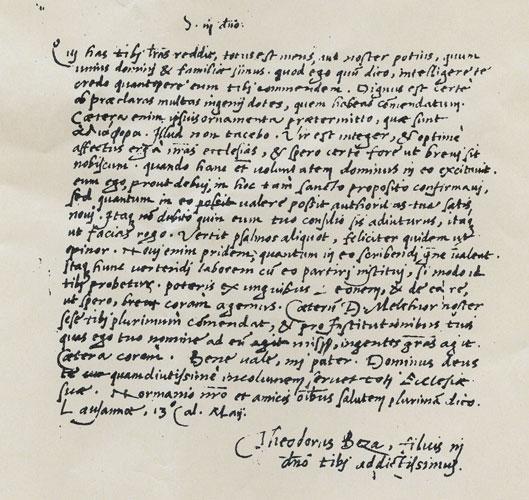 S. in dno.
Qui has tibj lras reddit, totus est meus, aut noster potius, quum
unius dominj & familiæ simus. quod ego quũ dico, intelligere te
credo quantopere eum tibj commendem. Dignus est certe
ob præclaras multas ingenij dotes, quem habeas cõmendatum.
Cætera enim ipsius ornamenta prætermitto, quæ sunt
ἀδιάφορα. Illud non tacebo. Vir est integer, & optime
affectus erga nras ecclesias, & spero certe fore ut brevj sit
nobiscum. quando hanc et voluntatem dominus in eo excitavit.
eum ego, prout debuj, in hoc tam sancto proposito confirmavj,
sed quantum in eo possit valere authoritas tua satis
novj. Itaq no debito quin eum tuo consilio sis adiuturus, itaq
ut facias rogo. Vertit psalmos aliquot, feliciter quidem ut
opinor. Novj enim pridem, quantum in eo scribendj gñe valeat.
Itaq hunc vertendj laborem cũ eo partirj institui, si modo id
tibj probetur. poteris ex unguibus leonem, & de ea re,
ut spero, coram agemus. Cæterũ D. Melchior noster
sese tibj plurimum cõmendat, & pro Institutionibus tuis
quas ego tuo nomine ad eũ misi, ingentes gras agit.
Cætera coram. Bene vale, mj pater. Dominus deus
te quam diutissime incolumem servet totj Ecclesiæ
suæ. Normanio nro et amicis oibus salutem plurimã dico.
Lausannæ, 13º Cal. Maij.
Theodorus Beza, filius in
dño tibj addictissimus.